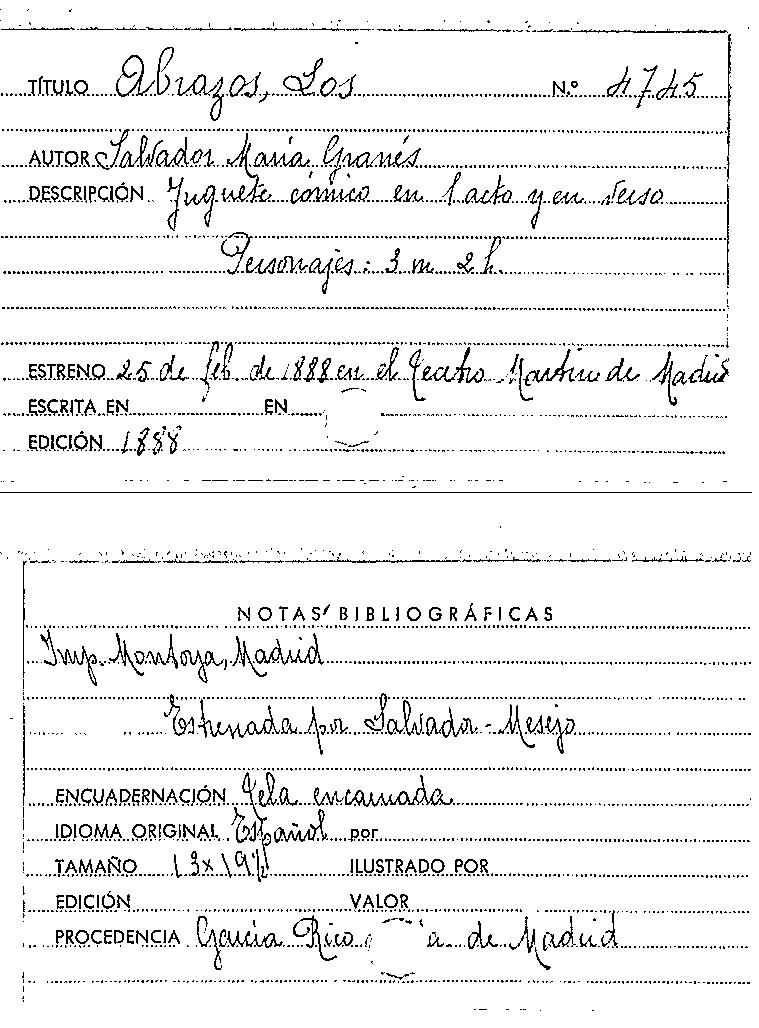 TÍTULO Abrazos, Los N.º 4745
AUTOR Salvador María Granés
DESCRIPCIÓN Juguete cómico en 1 acto y en verso
Personajes: 3 m 2 h.
ESTRENO 25 de feb. de 1888 en el Teatro Martín de Madrid
ESCRITA EN EN
EDICIÓN 1888
NOTAS BIBLIOGRÁFICAS
Imp. Montoya, Madrid
Estrenada por Salvador - Mesejo
ENCUADERNACIÓN Tela encarnada
IDIOMA ORIGINAL Español por
TAMAÑO 13 x 19½ ILUSTRADO POR
EDICIÓN VALOR
PROCEDENCIA García Rico de Madrid